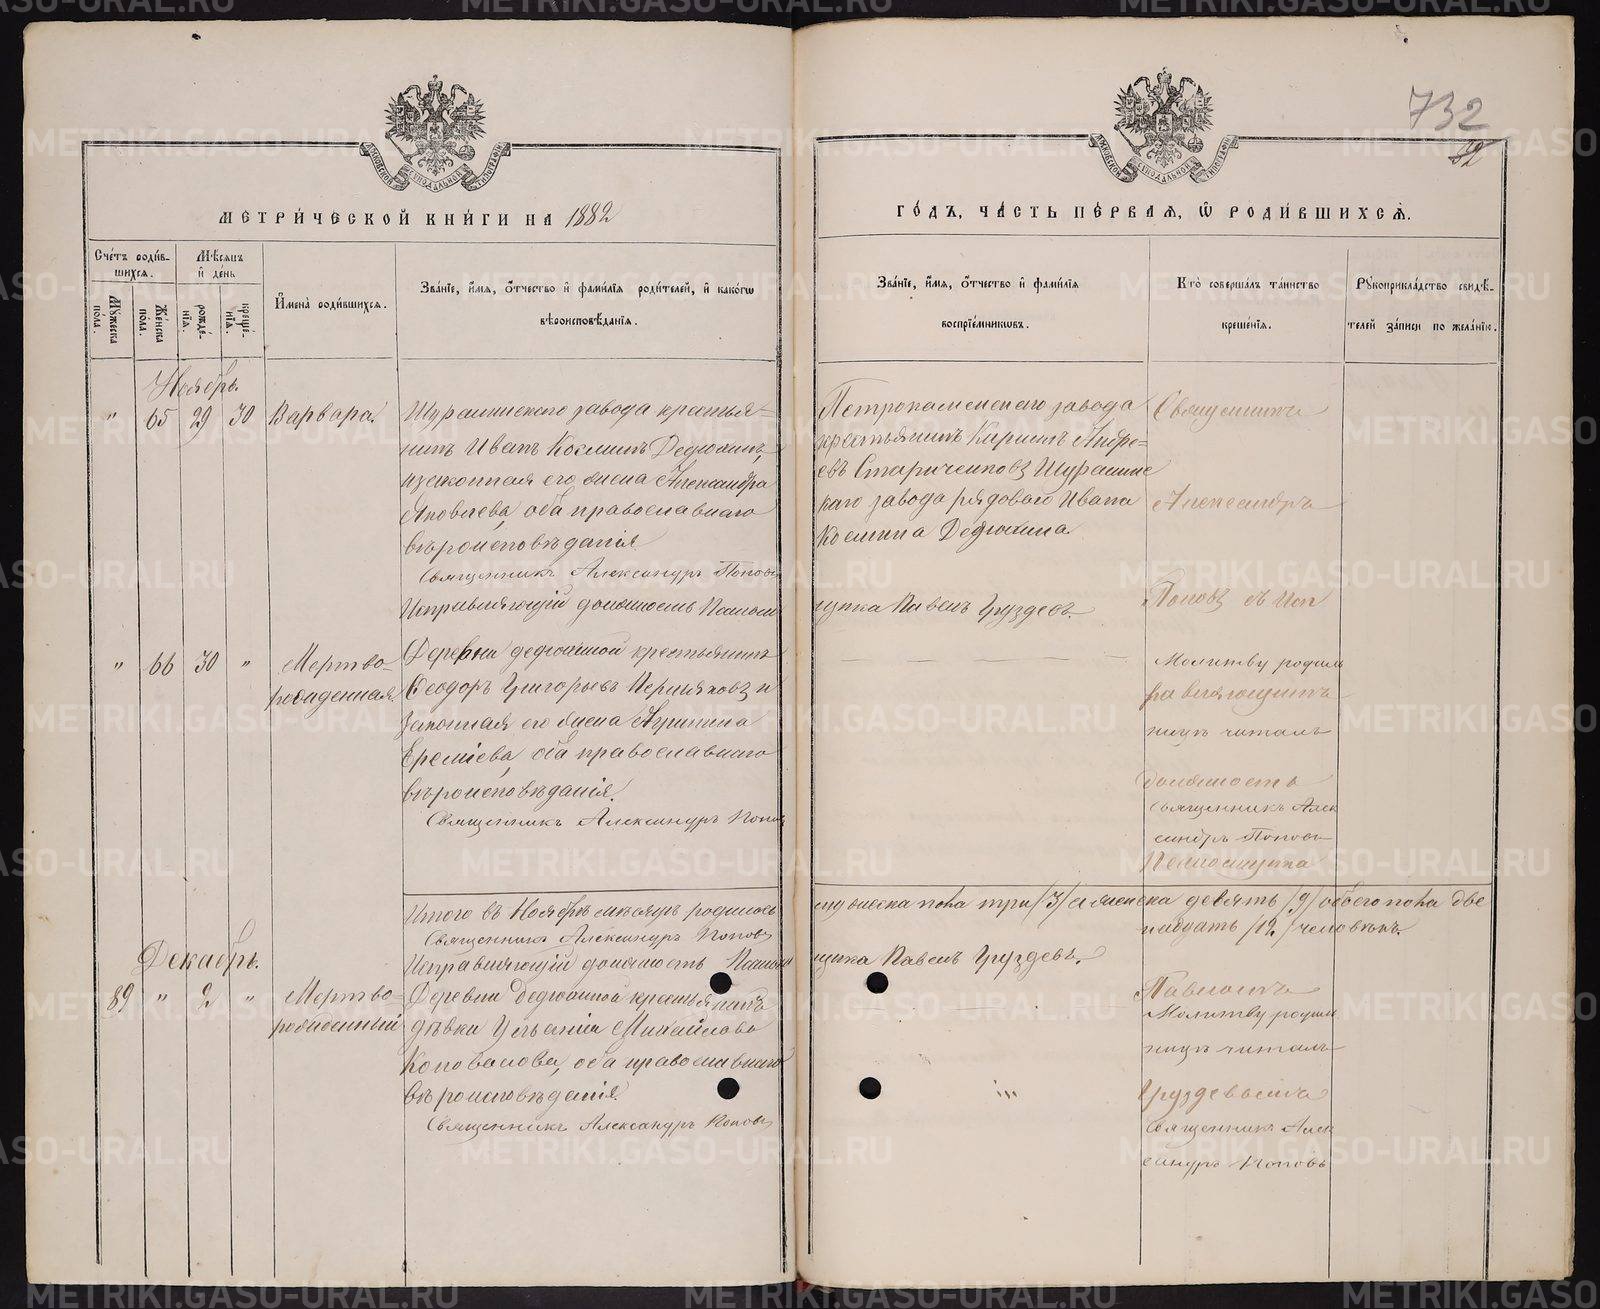 732
82
МЕТРИЧЕСКОЙ КНИГИ НА 1882
ГОДЪ, ЧАСТЬ ПЕРВАЯ, Ѿ РОДИВШИХСЯ.
Счетъ родив-
шихся.
Мужеска пола.
Женска пола.
Мѣсяцъ
и день
рожде-
нія.
креще-
нія.
Имена родившихся.
Званіе, имя, отчество и фамилія родителей, и какого
вѣроисповѣданія.
Званіе, имя, отчество и фамилія
воспріемниковъ.
Кто совершалъ таинство
крещенія.
Рукоприкладство свидѣ-
телей записи по желанію.
Ноябрь.
" 65 29 30 Варвара.
завода крестья=
нинъ Иванъ Козминъ Дедюхинъ,
и законная его жена Александра
Яковлева, оба православнаго
вѣроисповѣданія
Священникъ Александръ Поповъ
Исправляющій должность Псалом
Петрокаменскаго завода
крестьянинъ Кирилъ Андре=
евъ Стариченковъ
каго завода рядоваго Ивана
Козмина Дедюхина
щика Павелъ Груздевъ.
Священникъ
Александръ
Поповъ съ Исп
" 66 30 " Мертво-
рожденная.
Деревни Дедюхиной крестьянинъ
Ѳеодоръ Григорьевъ Пермяковъ и
законная его жена
Еремѣева, оба православнаго
вѣроисповѣданія.
Священникъ Александръ Поповъ
Молитву родиль
равляющимъ
ницѣ читалъ
должность
Священникъ Алек
сандръ Поповъ
Псаломщика
Итого въ Ноябрѣ мѣсяцѣ родилось
Священникъ Александръ Поповъ
Исправляющій должность Псалом
мужеска пола три /3/ и женска девять /9/ обоего пола две
надцать /12/ человѣкъ.
щика Павелъ Груздевъ.
Декабрь.
89 " 2 " Мертво=
рожденный
Деревни Дедюхиной крестьянина
дѣвки Михайлова
Коновалова, оба православнаго
вѣроисповѣданія
Священникъ Александръ Поповъ
Павломъ
Молитву родиль
ницѣ читалъ
Груздевымъ
Священникъ Алек
сандръ Поповъ
METRIKI.GASO-URAL.RU